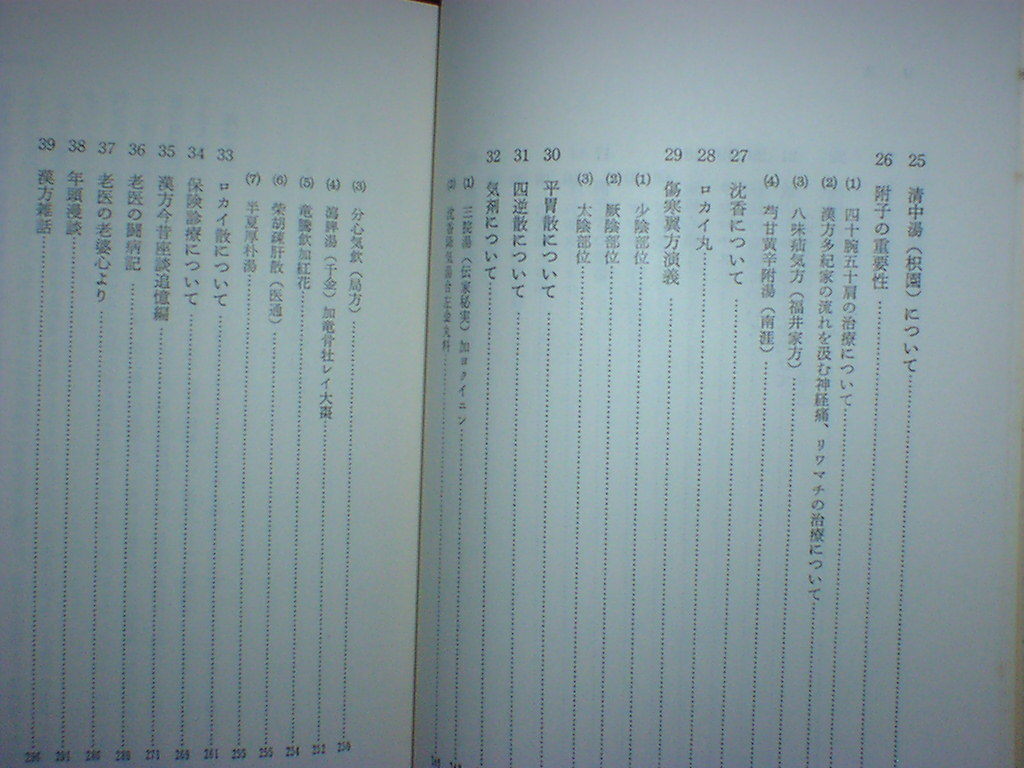 25 清中湯（枳園）について
26 附子の重要性
(1) 四十腕五十肩の治療について
(2) 漢方多紀家の流れを汲む神経痛、リウマチの治療について
(3) 八味疝気方（福井家方）
(4) 芎甘黄辛附湯（南涯）
27 沈香について
28 ロカイ丸
29 傷寒翼方演義
(1) 少陰部位
(2) 厥陰部位
(3) 太陰部位
30 平胃散について
31 四逆散について
32 気剤について
(1) 三脘湯（伝家秘宝）加ヨクイニン
(2)
(3) 分心気飲（局方） 250
(4) 瀉脾湯（千金）加竜骨牡レイ大棗 252
(5) 竜騰飲加紅花 254
(6) 柴胡疎肝散（医通） 255
(7) 半夏厚朴湯 255
33 ロカイ散について 261
34 保険診療について 269
35 漢方今昔座談追憶編 273
36 老医の闘病記 280
37 老医の老婆心より
38 年頭漫談
39 漢方雑話